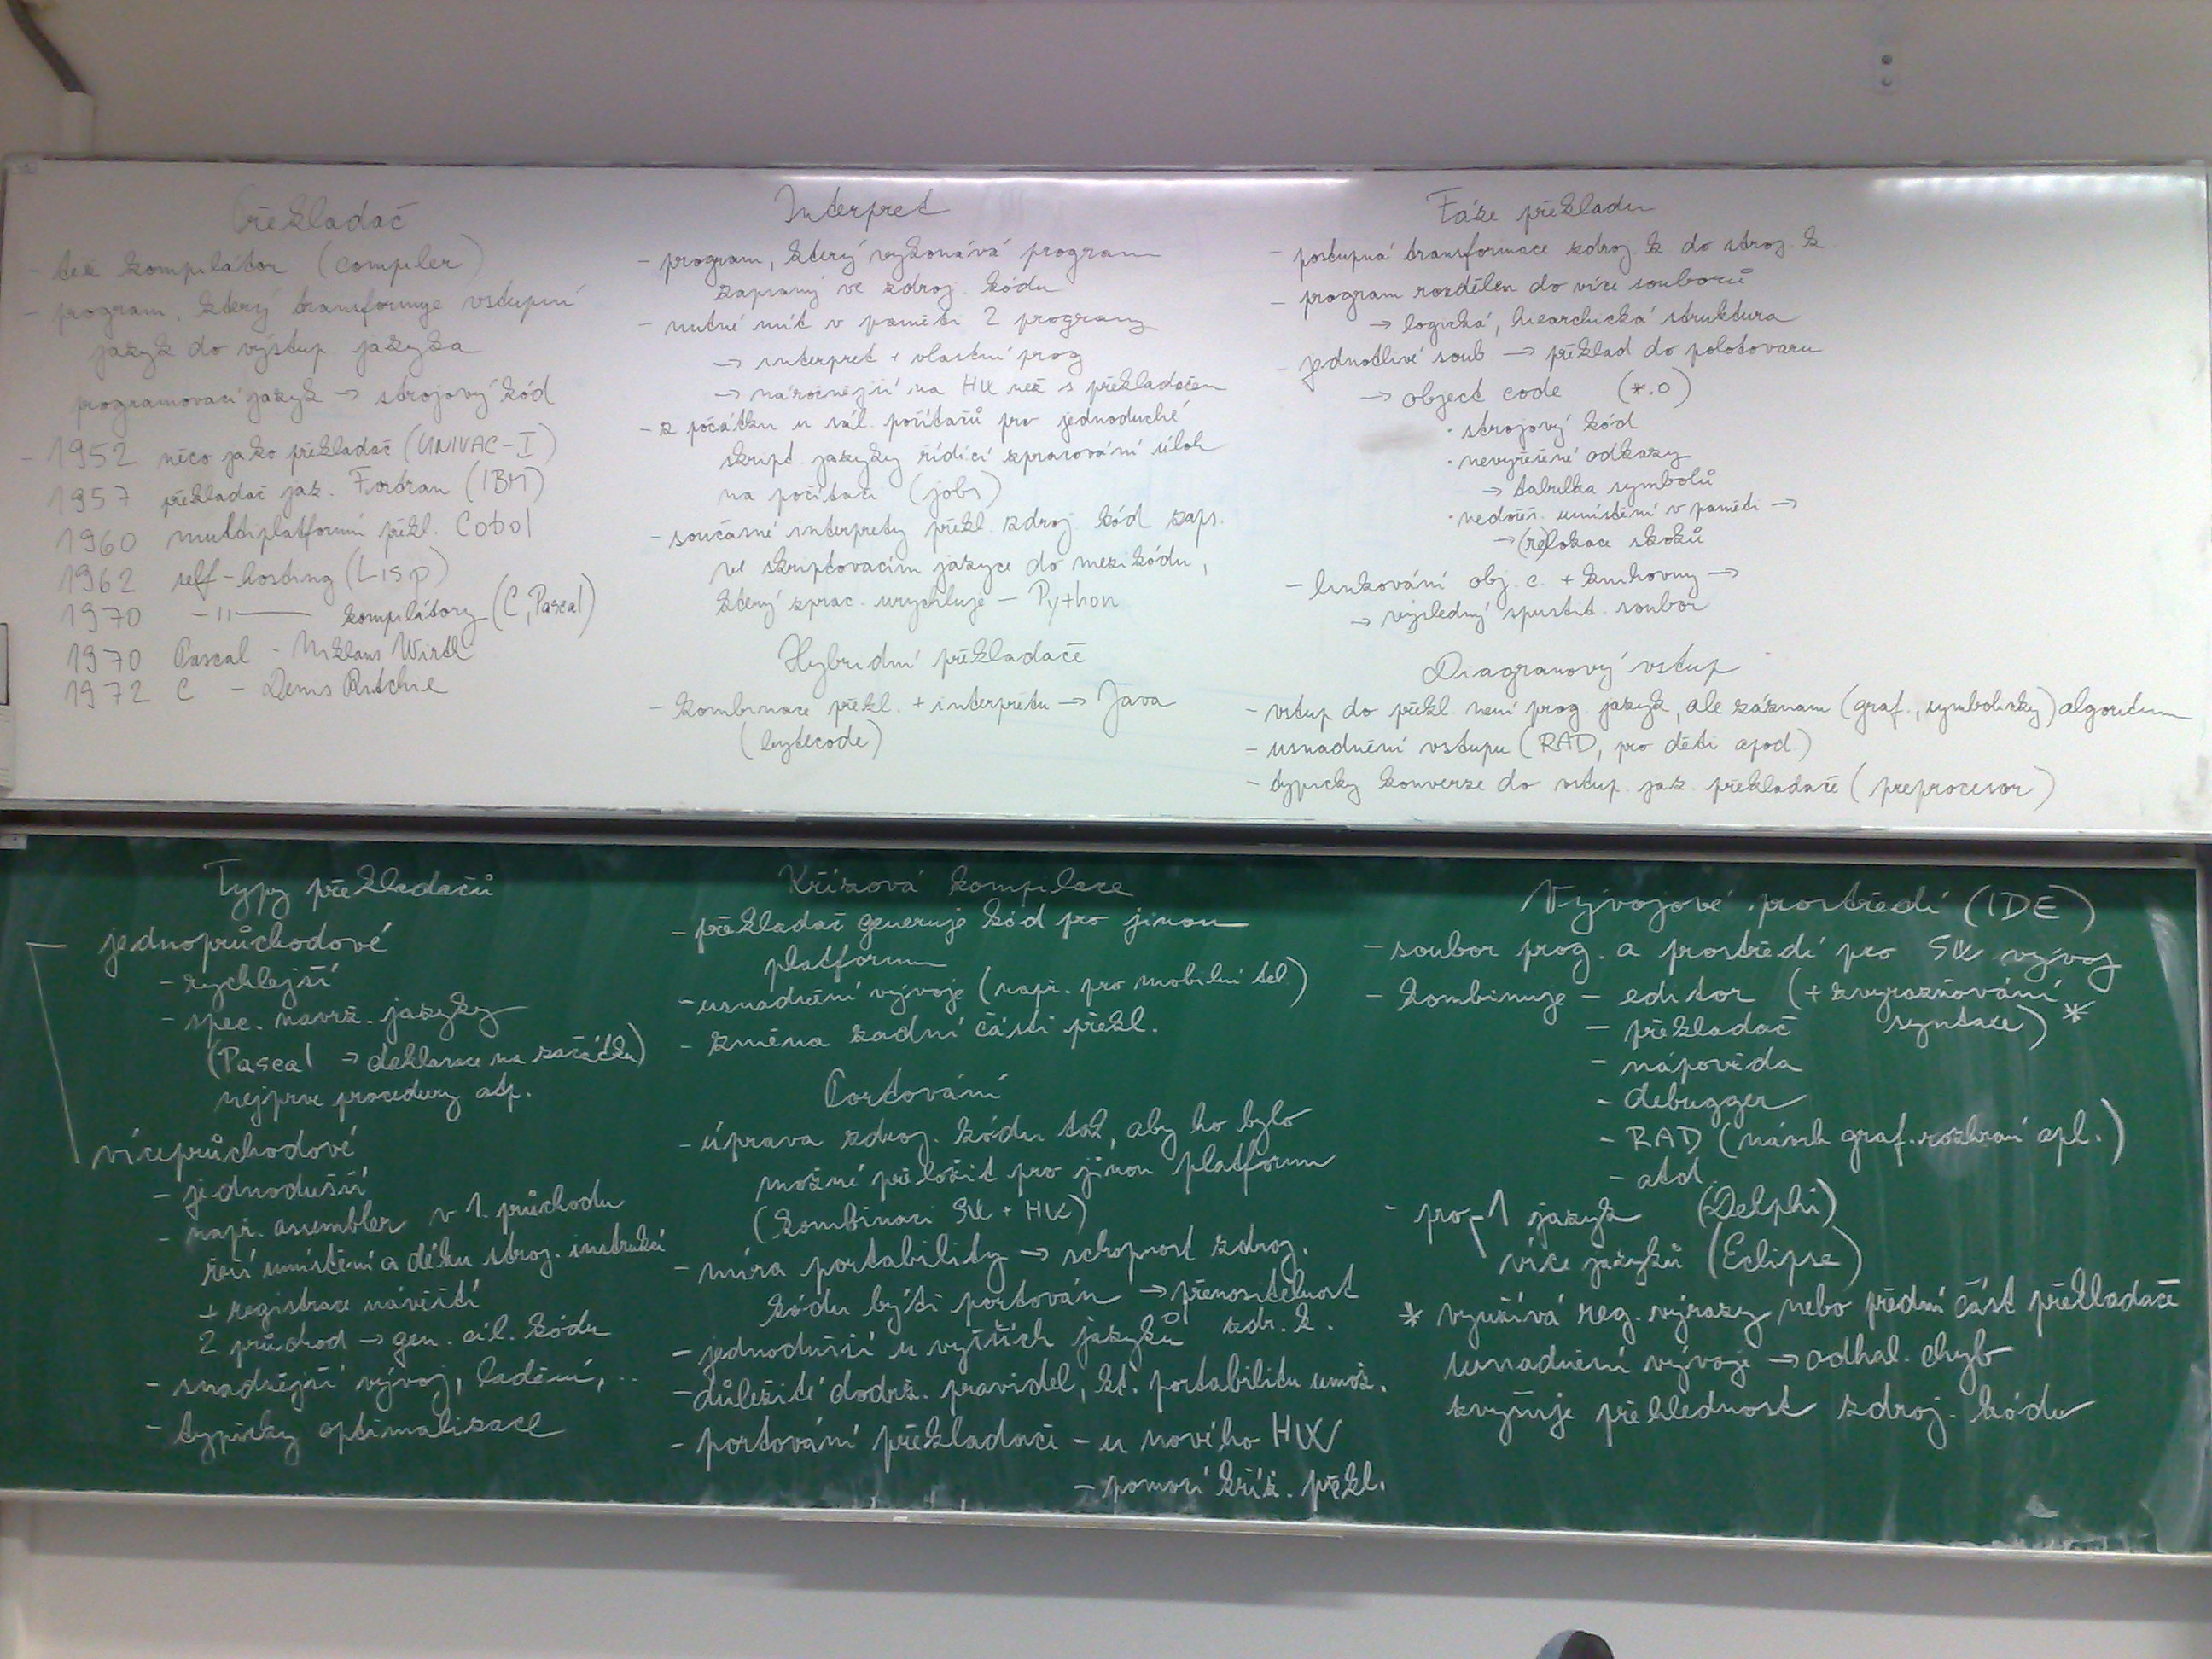 Překladač
- též kompilátor (compiler)
- program, který transformuje vstupní
jazyk do výstup. jazyka
programovací jazyk → strojový kód
- 1952 něco jako překladač (UNIVAC-I)
1957 překladač jaz. Fortran (IBM)
1960 multiplatformní překl. Cobol
1962 self-hosting (Lisp)
1970 -"- kompilátory (C, Pascal)
1970 Pascal - Niklaus Wirth
1972 C - Denis Ritchie
Interpret
- program, který vykonává program
zapsaný ve zdroj. kódu
- nutné mít v paměti 2 programy
→ interpret + vlastní prog
→ náročnější na HW než s překladačem
- z počátku u sál. počítačů pro jednoduché
skript. jazyky řídící zpracování úloh
na počítači (jobs)
- současné interprety překl. zdroj. kód zaps.
ve skriptovacím jazyce do mezikódu,
který zprac. urychluje - Python
Hybridní překladače
- kombinace překl. + interpretu → Java
(bytecode)
Fáze překladu
- postupná transformace zdroj. k do stroj. k.
- program rozdělen do více souborů
→ logická, hiearchická struktura
- jednotlivé soub → překlad do polotovaru
→ object code (*.o)
· strojový kód
· nevyřešené odkazy
→ tabulka symbolů
· nedořeš. umístění v paměti →
→ (re)lokace skoků
- linkování obj. c. + knihovny →
→ výsledný spustit. soubor
Diagramový vstup
- vstup do překl. není prog. jazyk, ale záznam (graf., symbolický) algoritmu
- usnadnění vstupu (RAD, pro děti apod.)
- typicky konverze do vstup. jaz. překladače (preprocesor)
Typy překladačů
jednoprůchodové
- rychlejší
- spec. navrž. jazyky
(Pascal → deklarace na začátku)
nejprve procedury atp.
víceprůchodové
- jednodušší
- např. assembler v 1. průchodu
řeší umístění a délku stroj. instrukcí
+ registrace návěští
2 průchod → gen. cíl. kódu
- snadnější vývoj, ladění, ..
- typicky optimalizace
Křížová kompilace
- překladač generuje kód pro jinou
platformu
- usnadnění vývoje (např. pro mobilní tel.)
- změna zadní části překl.
Portování
- úprava zdroj. kódu tak, aby ho bylo
možné přeložit pro jinou platformu
(kombinaci SW + HW)
- míra portability → schopnost zdroj.
kódu býti portován → přenositelnost
zdr. k.
- jednodušší u vyšších jazyků
- důležité dodrž. pravidel, kt. portabilitu umož.
- portování překladačů - u nového HW
- pomocí kříž. překl.
Vývojové prostředí (IDE)
- soubor prog. a prostředí pro SW vývoj
- kombinuje - editor (+ zvýrazňování
syntaxe) *
- překladač
- nápověda
- debugger
- RAD (návrh graf. rozhraní apl.)
- atd.
- pro 1 jazyk (Delphi)
více jazyků (Eclipse)
* využívá reg. výrazy nebo přední část překladače
usnadnění vývoje → odhal. chyb
zvyšuje přehlednost zdroj. kódu